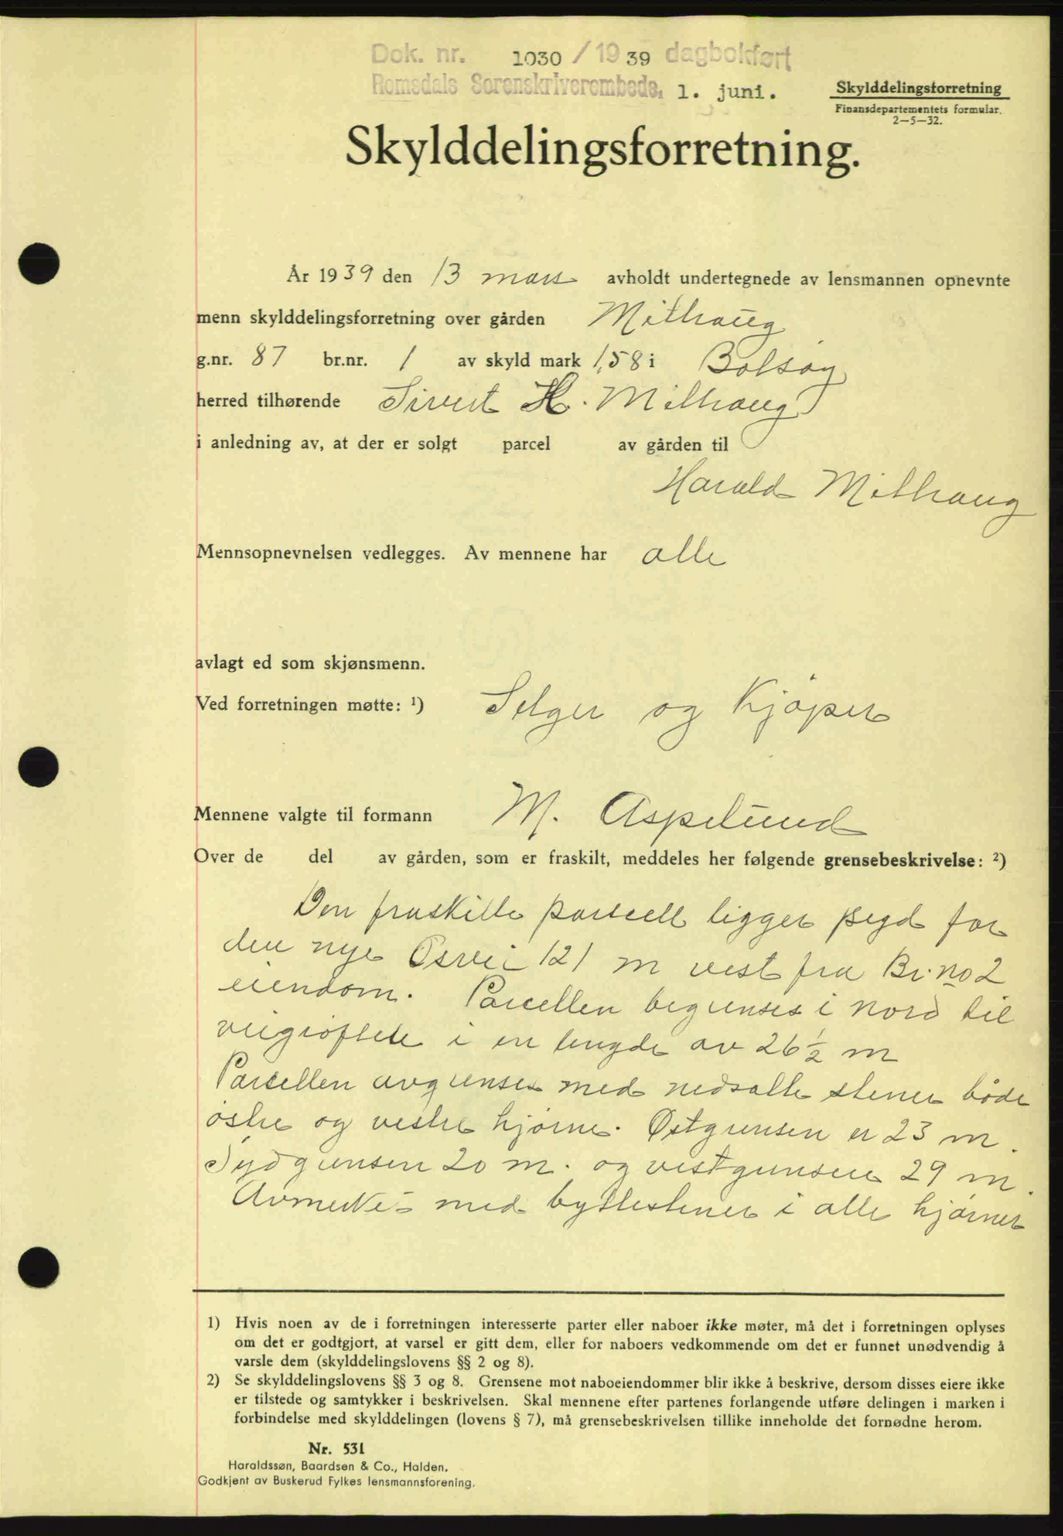 Dok. nr. 1030 / 1939 dagbokført
Romsdals Sorenskriverembede, 1. juni.
Skylddelingsforretning
Finansdepartementets formular.
2—5—32.
Skylddelingsforretning.
År 1939 den 13 mars avholdt undertegnede av lensmannen opnevnte
menn skylddelingsforretning over gården Mithaug
g.nr. 87 br.nr. 1 av skyld mark 1,58 i Bolsøy
herred tilhørende Sivert H. Mithaug
i anledning av, at der er solgt parcel av gården til
Harald Mithaug
Mennsopnevnelsen vedlegges. Av mennene har alle
avlagt ed som skjønsmenn.
Ved forretningen møtte: ¹) Selger og Kjøper
Mennene valgte til formann M. Aspelund
Over de del av gården, som er fraskilt, meddeles her følgende grensebeskrivelse: ²)
Den fraskilte parcell ligger syd for
den nye Osvei 121 m vest fra Br. no 2
eiendom. Parcellen begrenses i nord til
veigrøften i en lengde av 26 ½ m
Parcellen avgrenses med nedsatte stener både
østre og vestre hjørne. Østgrensen er 23 m.
Sydgrensen 20 m. og vestgrensen 29 m.
Avmerket med byttestener i alle hjørner
1) Hvis noen av de i forretningen interesserte parter eller naboer ikke møter, må det i forretningen oplyses
om det er godtgjort, at varsel er gitt dem, eller for naboers vedkommende om det er funnet unødvendig å
varsle dem (skylddelingslovens §§ 2 og 8).
2) Se skylddelingslovens §§ 3 og 8. Grensene mot naboeiendommer blir ikke å beskrive, dersom disses eiere ikke
er tilstede og samtykker i beskrivelsen. Skal mennene efter partenes forlangende utføre delingen i marken i
forbindelse med skylddelingen (lovens § 7), må grensebeskrivelsen tillike inneholde det fornødne herom.
Nr. 531
Haraldssøn, Baardsen & Co., Halden.
Godkjent av Buskerud Fylkes lensmannsforening.